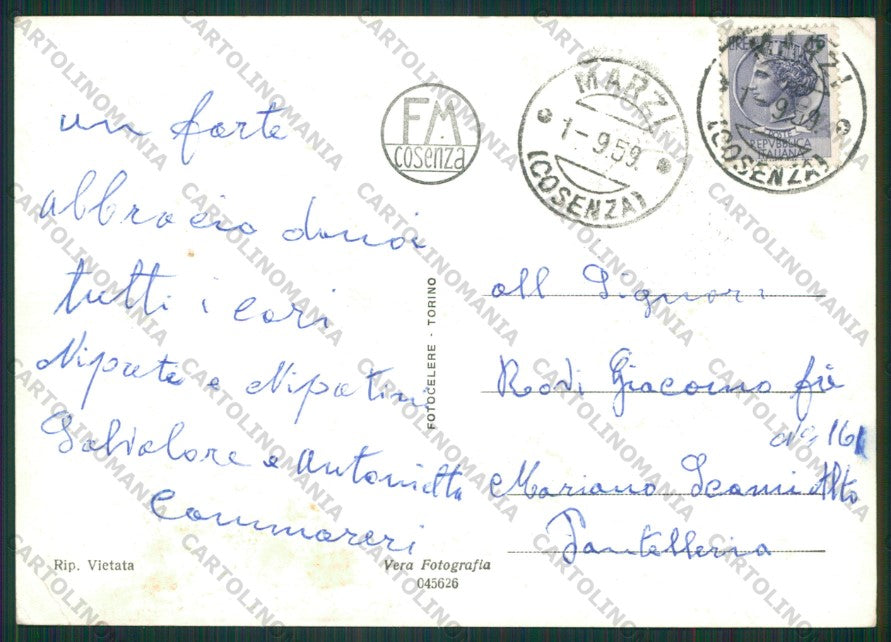 un forte
abbracio danoi
tutti i cari
Nipote e Nipotini
Salvatore e Antonietta
Cammareri
FM
cosenza
MARZI
1-9.59
(COSENZA)
MARZI
1-9.59
(COSENZA)
LIRE 15
POSTE
REPUBBLICA
ITALIANA
FOTOCELERE - TORINO
all Signori
Rodi Giacomo fù
No 161
Mariano Scauri Alto
Pantelleria
Rip. Vietata
Vera Fotografia
045626
CARTOLINOMANIA